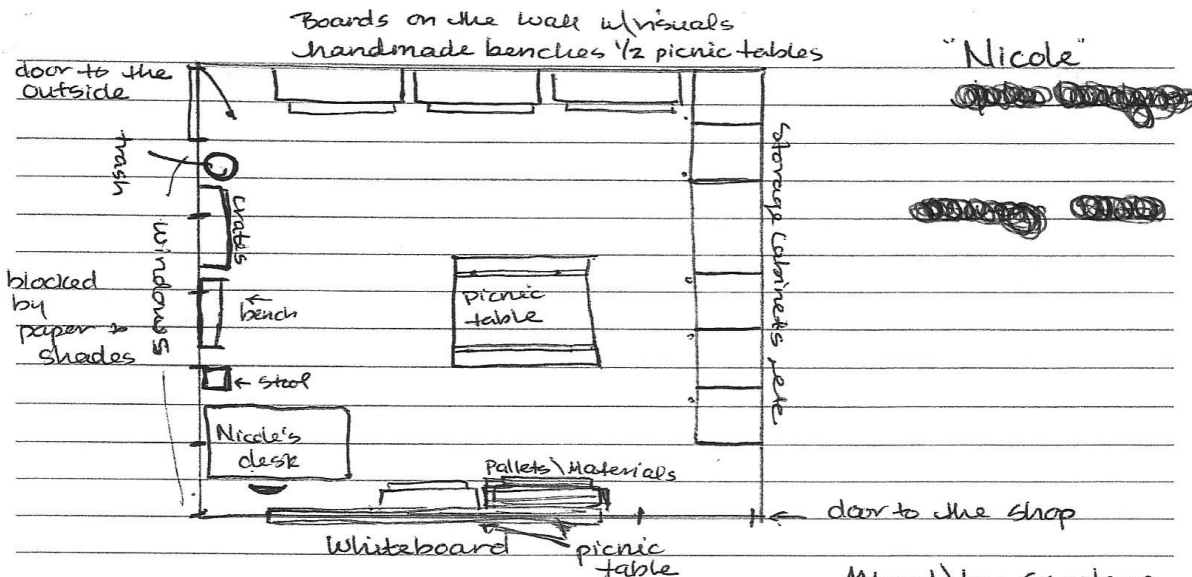 Boards on the wall w/visuals
handmade benches 1/2 picnic tables
"Nicole"
door to the
outside
trash
crates
windows
blocked
by
paper +
shades
←
bench
← stool
picnic
table
Storage Cabinets etc
Nicole's
desk
Pallets\Materials
← door to the shop
Whiteboard
picnic
table